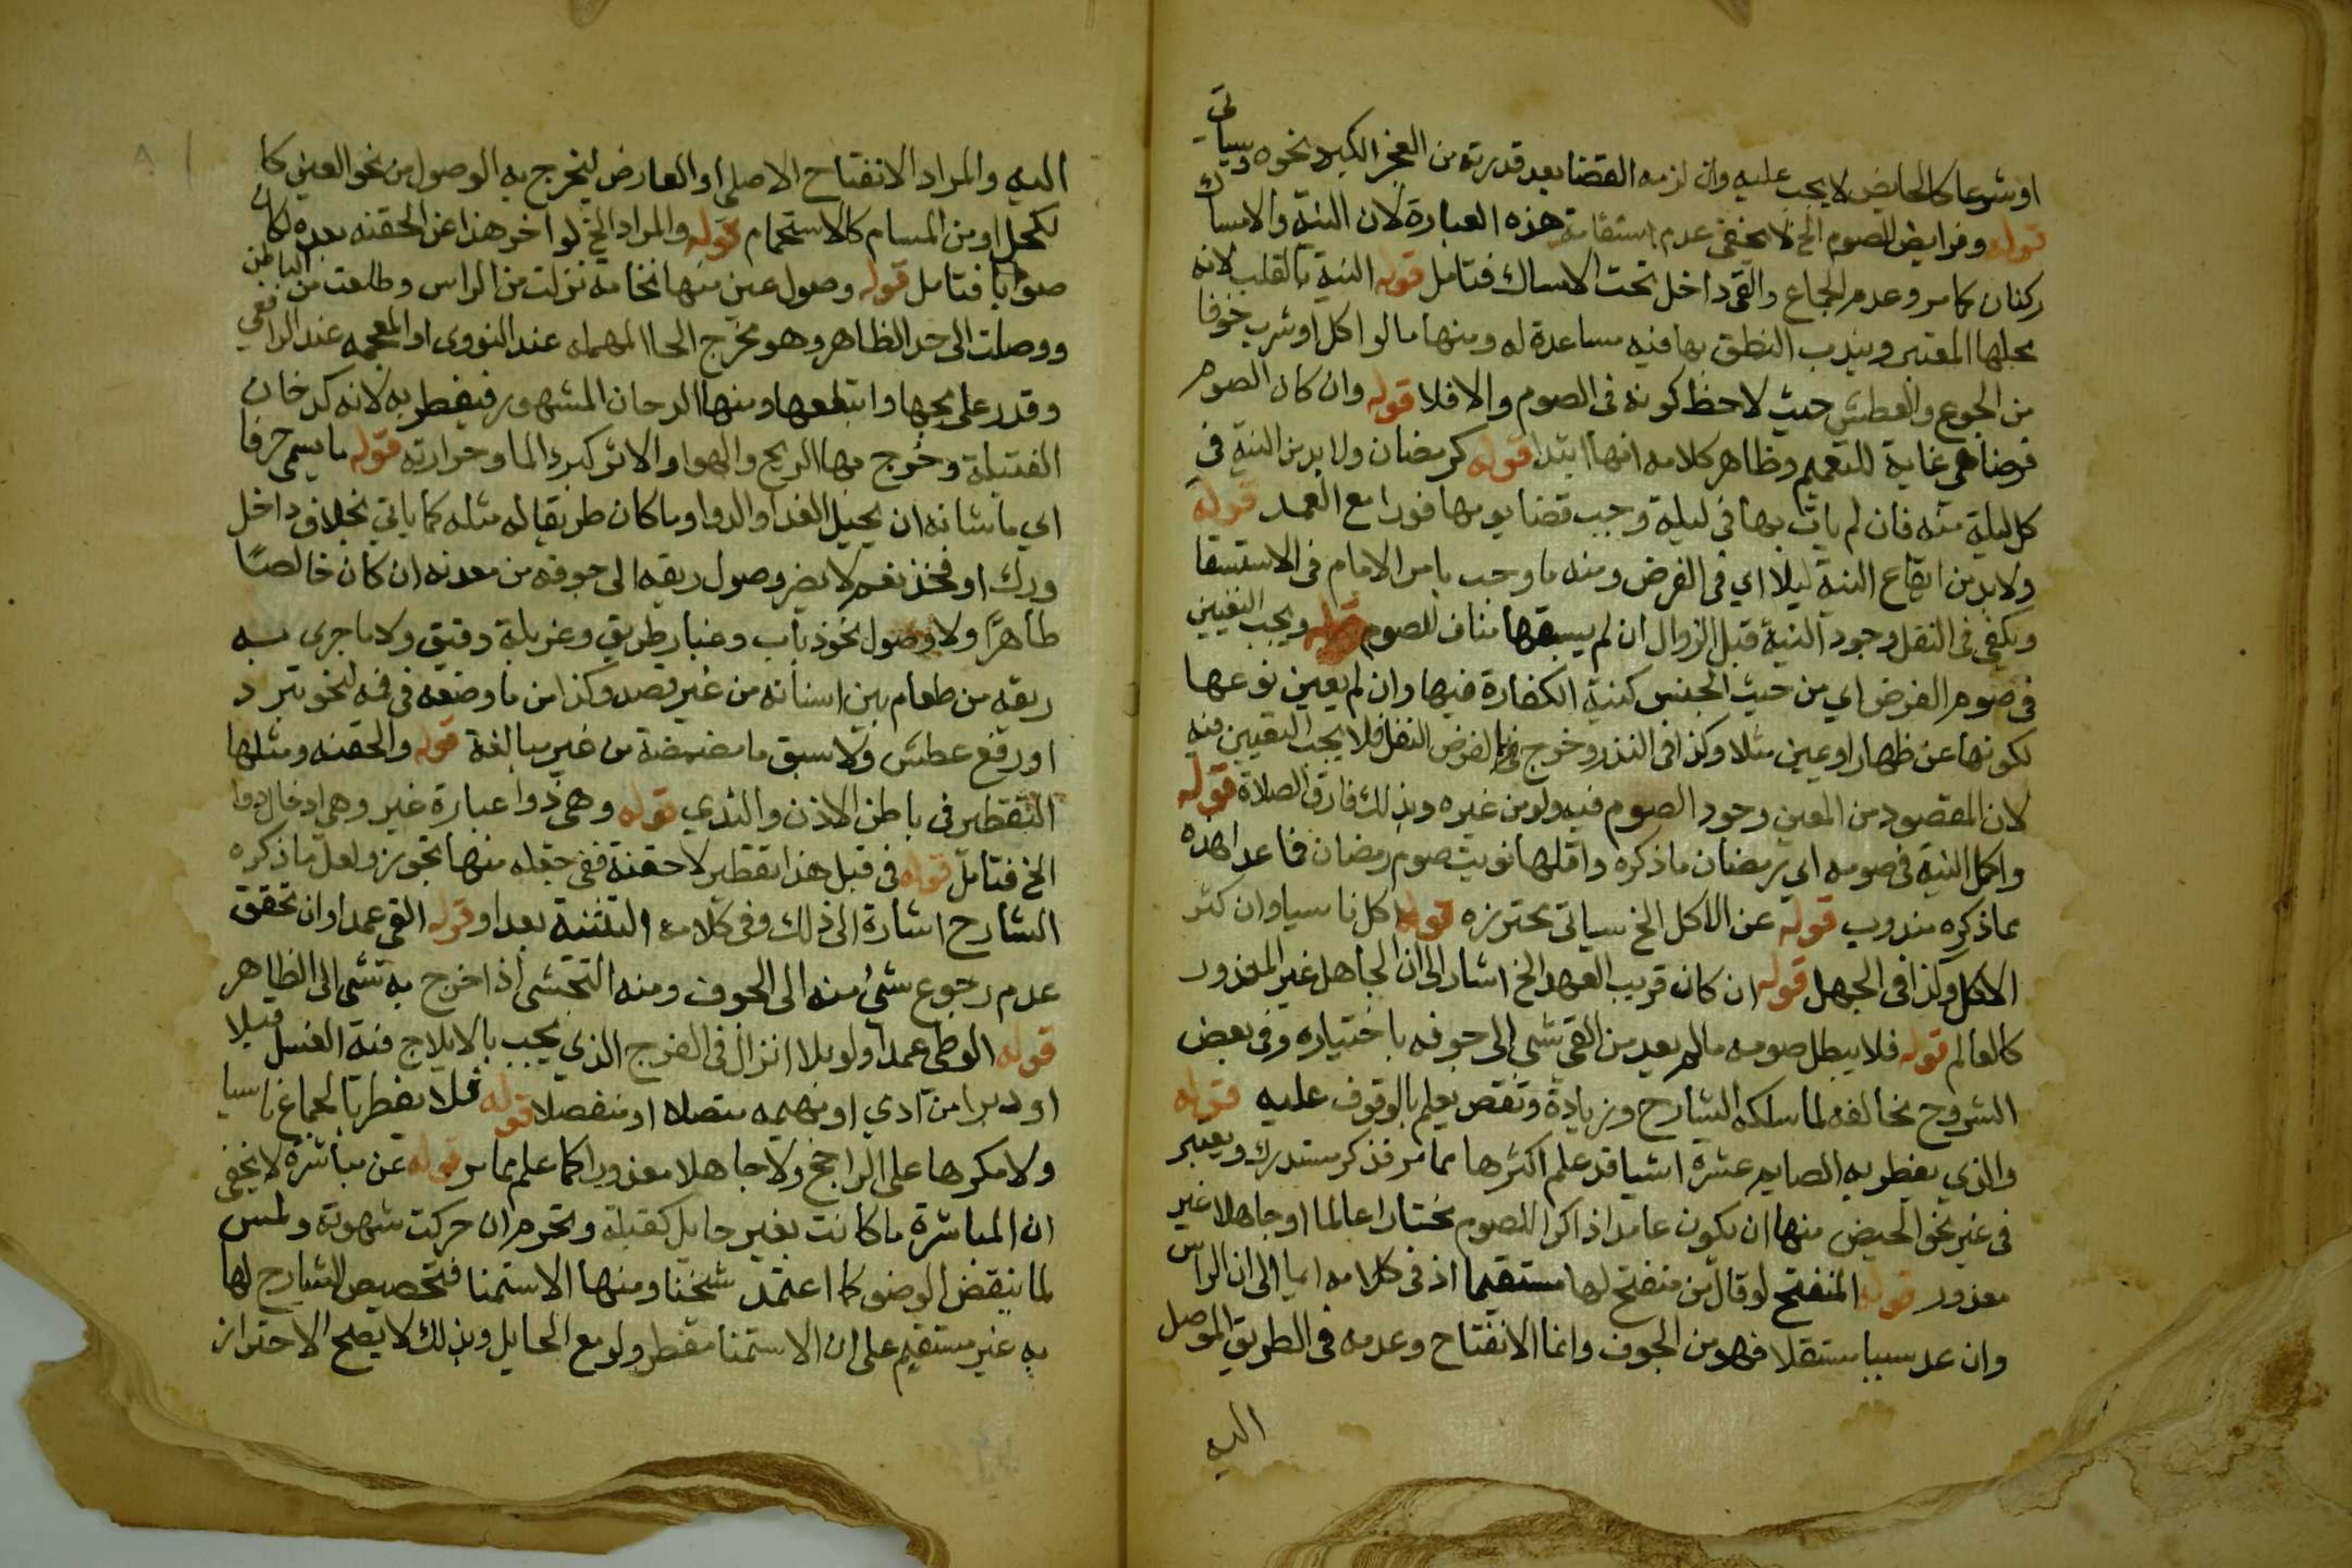 او شرعا كالحايض لا يجب عليه وان لزمه القضا بعد قدرته من العجز الكبير ونحوه وسياتي
قوله وفرايض الصوم الخ لا يخفى عدم استقامة هذه العبارة لان النية والامساك
ركنان كما مر وعدم الجماع والقي داخل تحت الامساك فتامل قوله النية بالقلب لانه
محلها المعتبر ويندب النطق بها فيه مساعدة له ومنها ما لو اكل او شرب خوفا
من الجوع والعطش حيث لاحظ كونه في الصوم والا فلا قوله وان كان الصوم
فرضا هي غاية للتعميم وظاهر كلامه انها ابتدا قوله كرمضان ولا بد من النية في
كل ليلة منه فان لم يات بها في ليلة وجب قضا يومها فورا مع العمد قوله
ولا بد من ايقاع النية ليلا اي في الفرض ومنه ما وجب بامر الامام في الاستسقا
ويكفي في النفل وجود النية قبل الزوال ان لم يسبقها مناف للصوم قوله ويجب التعيين
في صوم الفرض اي من حيث الجنس كنية الكفارة فيها وان لم يعين نوعها
لكونها عن ظهار او يمين مثلا وكذا في النذر وخرج بالفرض النفل فلا يجب التعيين فيه
لان المقصود من المعين وجود الصوم فيه ولو من غيره وبذلك فارق الصلاة قوله
واكمل النية في صومه اي رمضان ما ذكره واقلها نويت صوم رمضان فما عدا هذه
مما ذكره مندوب قوله عن الاكل الخ سياتي محترزه قوله اكل ناسيا وان كثر
الاكل وكذا في الجهل قوله ان كان قريب العهد الخ اشار الى ان الجاهل غير المعذور
كالعالم قوله فلا يبطل صومه ما لم يعد من القي شي الى جوفه باختياره وفي بعض
الشروح مخالفة لما سلكه الشارح وزيادة ونقص يعلم بالوقوف عليه قوله
والذي يفطر به الصايم عشرة اشيا قد علم اكثرها مما مر فذكر مستدرك ويعتبر
في غير نحو الحيض منها ان يكون عامدا ذاكرا للصوم مختارا عالما او جاهلا غير
معذور قوله المنفتح لو قال من منفتح لها مستقيما اذ في كلامه ايما الى ان الراس
وان عد سببا مستقلا فهو من الجوف وانما الانفتاح وعدمه في الطريق الموصل
اليه
اليه والمراد الانفتاح الاصلي او العارض ليخرج به الوصول من نحو العين كا
لكحل او من المسام كالاستحمام قوله والمراد الخ لو اخر هذا عن الحقنه بعده لكان
صوابا فتامل قوله وصول عين منها نخامه نزلت من الراس وطلعت من الباطن
ووصلت الى حد الظاهر وهو مخرج الحا المهمله عند النووي او المعجمه عند الرافعي
وقدر على مجها وابتلعها ومنها الدخان المشهور فيفطر به لانه كدخان
الفتيلة وخرج بها الريح والهوا والاثر كبرد الما وحرارته قوله ما يسمى جوفا
اي ما شانه ان يحيل الغذا والدوا وما كان طريقا له مثله كما ياتي بخلاف داخل
ورك او فخذ نعم لا يضر وصول ريقه الى جوفه من معدنه ان كان خالصا
طاهرا ولا وصول نحو ذباب وغبار طريق وغربلة دقيق ولا ما جرى به
ريقه من طعام بين اسنانه من غير قصد وكذا من ما وضعه في فمه لنحو تبرد
او رفع عطش ولا سبق ما مضمضة من غير مبالغة قوله والحقنه ومثلها
التقطير في باطن الاذن والثدي قوله وهي دوا عبارة غير وهي ادخال دوا
الخ فتامل قوله في قبل هذا تقطير لا حقنة ففي جعله منها تجوز ولعل ما ذكره
الشارح اشارة الى ذلك وفي كلامه التثنية بعد او قوله القي عمدا وان تحقق
عدم رجوع شيء منه الى الجوف ومنه التجشي اذا خرج به شي الى الظاهر
قوله الوطي عمدا ولو بلا انزال في الفرج الذي يجب بالايلاج فيه الغسل قبلا
او دبرا من آدمي او بهيمه متصلا او منفصلا قوله فلا يفطر بالجماع ناسيا
ولا مكرها على الراجح ولا جاهلا معذورا كما علم مما مر قوله عن مباشرة لا يخفى
ان المباشرة ما كانت بغير حايل كقبلة وتحرم ان حركت شهوته ولمس
لما ينقض الوضو كما اعتمد شيخنا ومنها الاستمنا فتخصيص الشارح لها
به غير مستقيم على ان الاستمنا مفطر ولو مع الحايل وبذلك لا يصح الاحتراز